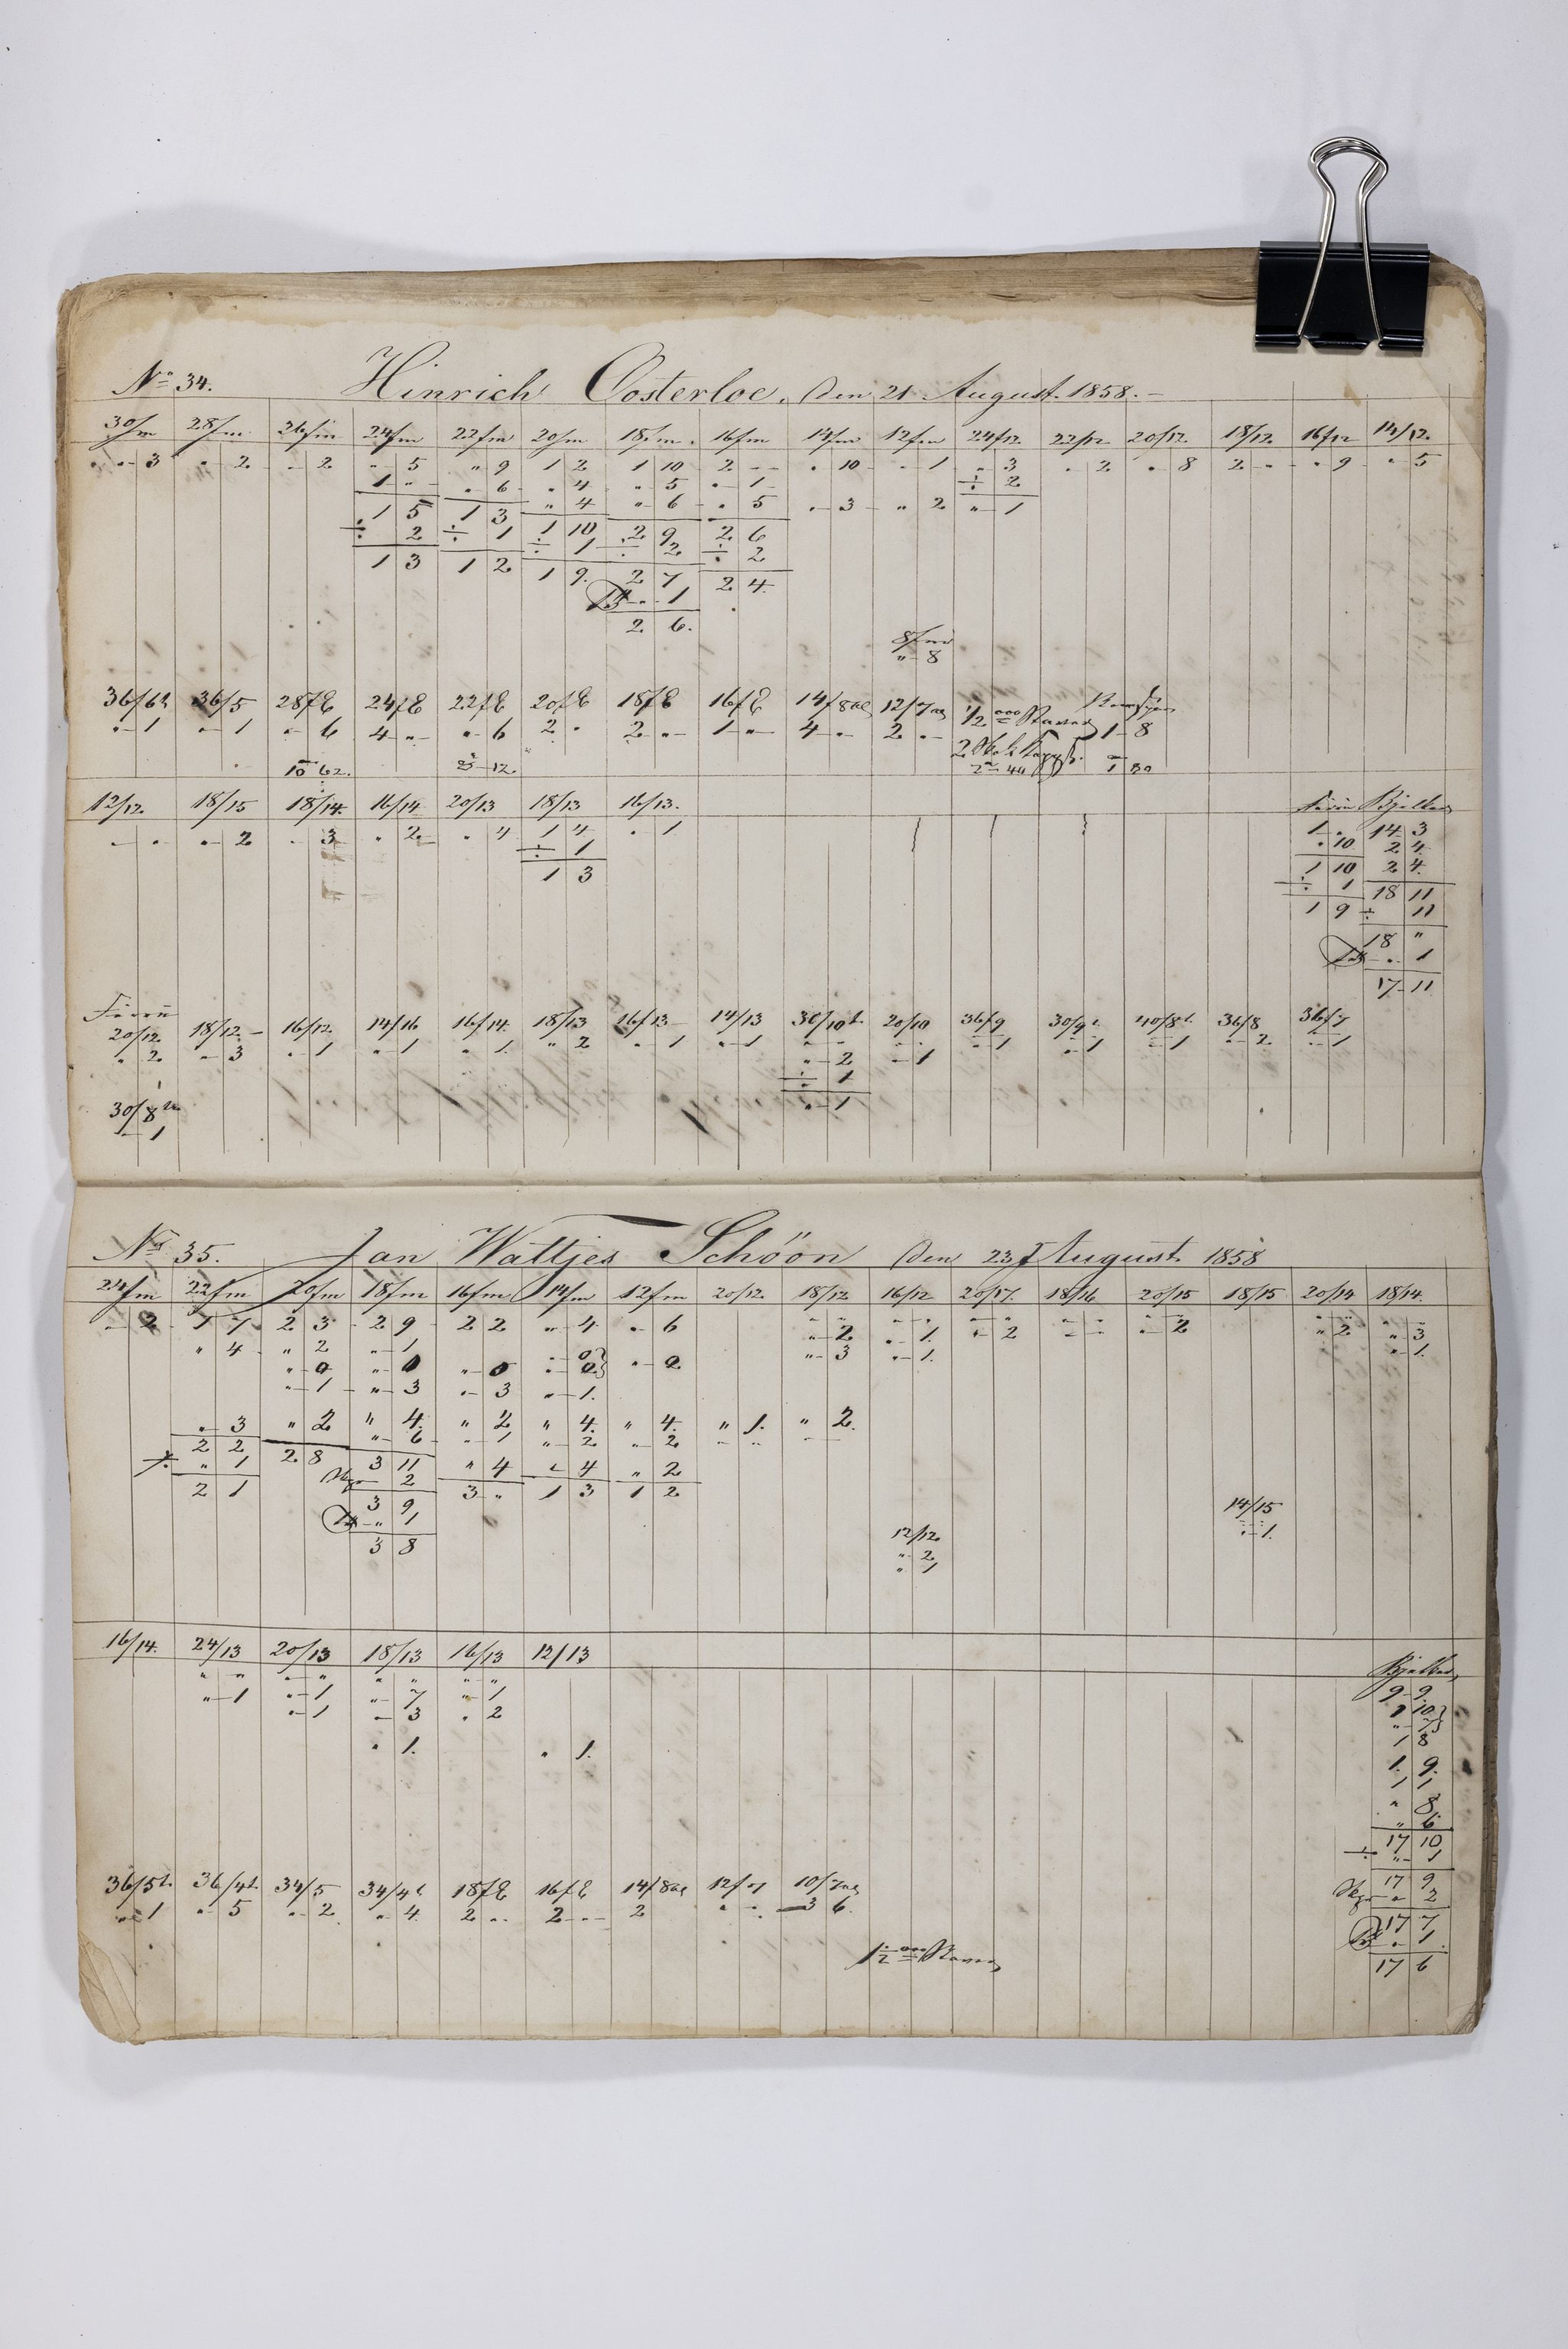 No 34. Hinrich Oosterloe, den 21 August. 1858.
30/m 28/m 26/m 24/m 22/m 20/m 18/m 16/m 14/m 12/m 24/12 22/12 20/12. 18/12 16/12 14/12.
" 3 " 2 " 2 " 5 " 9 1 2 1 10 2 " " 10 " 1 " 3 " 2 " 8 2 " " 9 " 5
1 " " 6 " 4 " 5 " 1 ÷ 2
1 5 1 3 " 4 " 6 " 5 " 3 " 2 " 1
÷ 2 ÷ 1 1 10 2 9 2 6
1 3 1 2 ÷ 1 ÷ 2 ÷ 2
1 9 2 7 2 4
" 1
2 6.
8/m
" 8
36/6 36/5 28/E 24/E 22/E 20/E 18/E 16/E 14/8 12/7
" 1 " 1 " 6 4 " " 6 2 " 2 " 1 " 4 " 2 " 1 8
12/12 18/15 18/14. 16/14 20/13 18/13 16/13. Bjelker
" " " 2 " 3 " 2 " 4 1 4 " 1 1 " 14 3
÷ 1 " 10 2 4
1 3 1 10 2 4
÷ 1 18 11
1 9 ÷ 11
18 "
" 1
17 11
20/12 18/12 16/12. 14/16 16/14. 18/13 16/13 14/13 36/10 20/10 36/9 30/9 40/8 36/8 36/7
" 2 " 3 " 1 " 1 " 1 " 2 " 1 " 1 " 2 " 1 " 1 " 1 " 1 " 2 " 1
÷ 1
" 1
30/8
" 1
No 35. Jan Wattjes Schöön den 23 August 1858
24/m 22/m 20/m 18/m 16/m 14/m 12/m 20/12. 18/12 16/12 20/17. 18/16 20/15 18/15 20/14 18/14.
" 2 1 7 2 3 2 9 2 2 " 4 " 6 " 2 " 1. " 2 " " " 2 " 2 " 3
" 4 " 2 " 1 " 3 " 1. " 1.
" 1 " 3 " 3 " 1.
" 3 " 2 " 4. " 2 " 4. " 4. " 1. " 2.
2 2 2 8 " 6 " 1 " 2 " 2
" 1 3 11 " 4 " 4 " 2
2 1 2 3 " 1 3 1 2
3 9
" 1
3 8
14/15
" 1.
12/12
" 2
" 1
16/14. 24/13 20/13 18/13 16/13 12/13 Bjelker
" " " " " " " " 9 9
" 1 " 1 " 7 " 1
" 1 " 3 " 2 1 8
" 1. " 1. 1. 9.
1 1
" 8
" 6
17 10
÷ " 1
17 9
" 2
17 7
" 1
17 6
36/5 36/4 34/5 34/4 18/E 16/E 14/8 12/7 10/7
" 1 " 5 " 2 " 4 2 " 2 " 2 " " 3 6